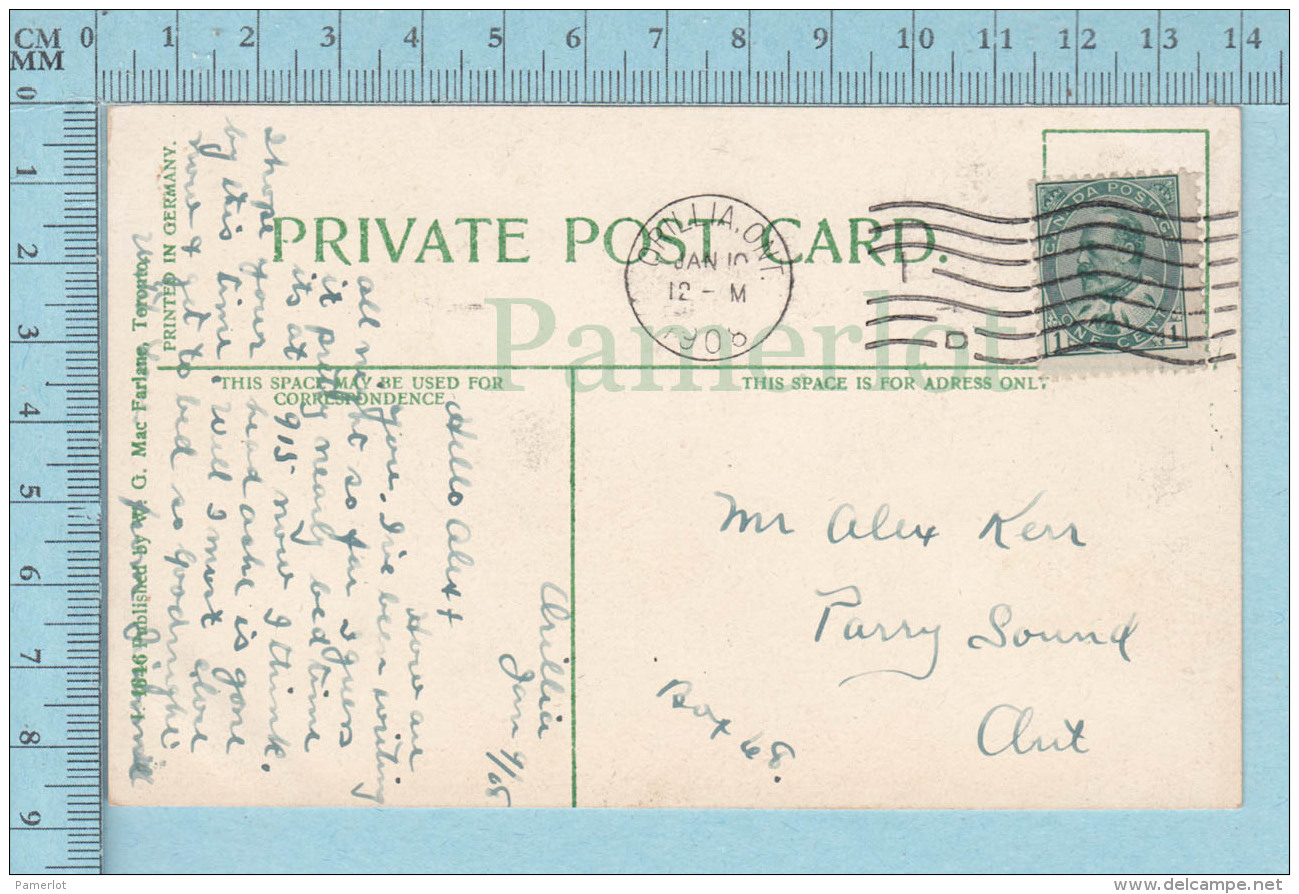 CM 0 1 2 3 4 5 6 7 8 9 10 11 12 13 14
MM
0 1 2 3 4 5 6 7 8 9
PRIVATE POST CARD.
ORILLIA, ONT.
JAN 10
12 - M
CANADA POSTAGE
1 ONE CENT 1
D
Pamerlot
THIS SPACE MAY BE USED FOR
CORRESPONDENCE
THIS SPACE IS FOR ADRESS ONLY
PRINTED IN GERMANY.
Published by W. G. Mac Farlane, Toronto,
Orillia
Jan 9/08
Hello Alex
How are
you. I've been writing
all night so far I guess
it pretty nearly bed time
its at 915 now I think.
I hope your head ache is gone
by this time. Well I must
love & get to bed so goodnight.
Mr Alex Kerr
Parry Sound
Ont
Box 68.
Pamerlot
www.delcampe.net